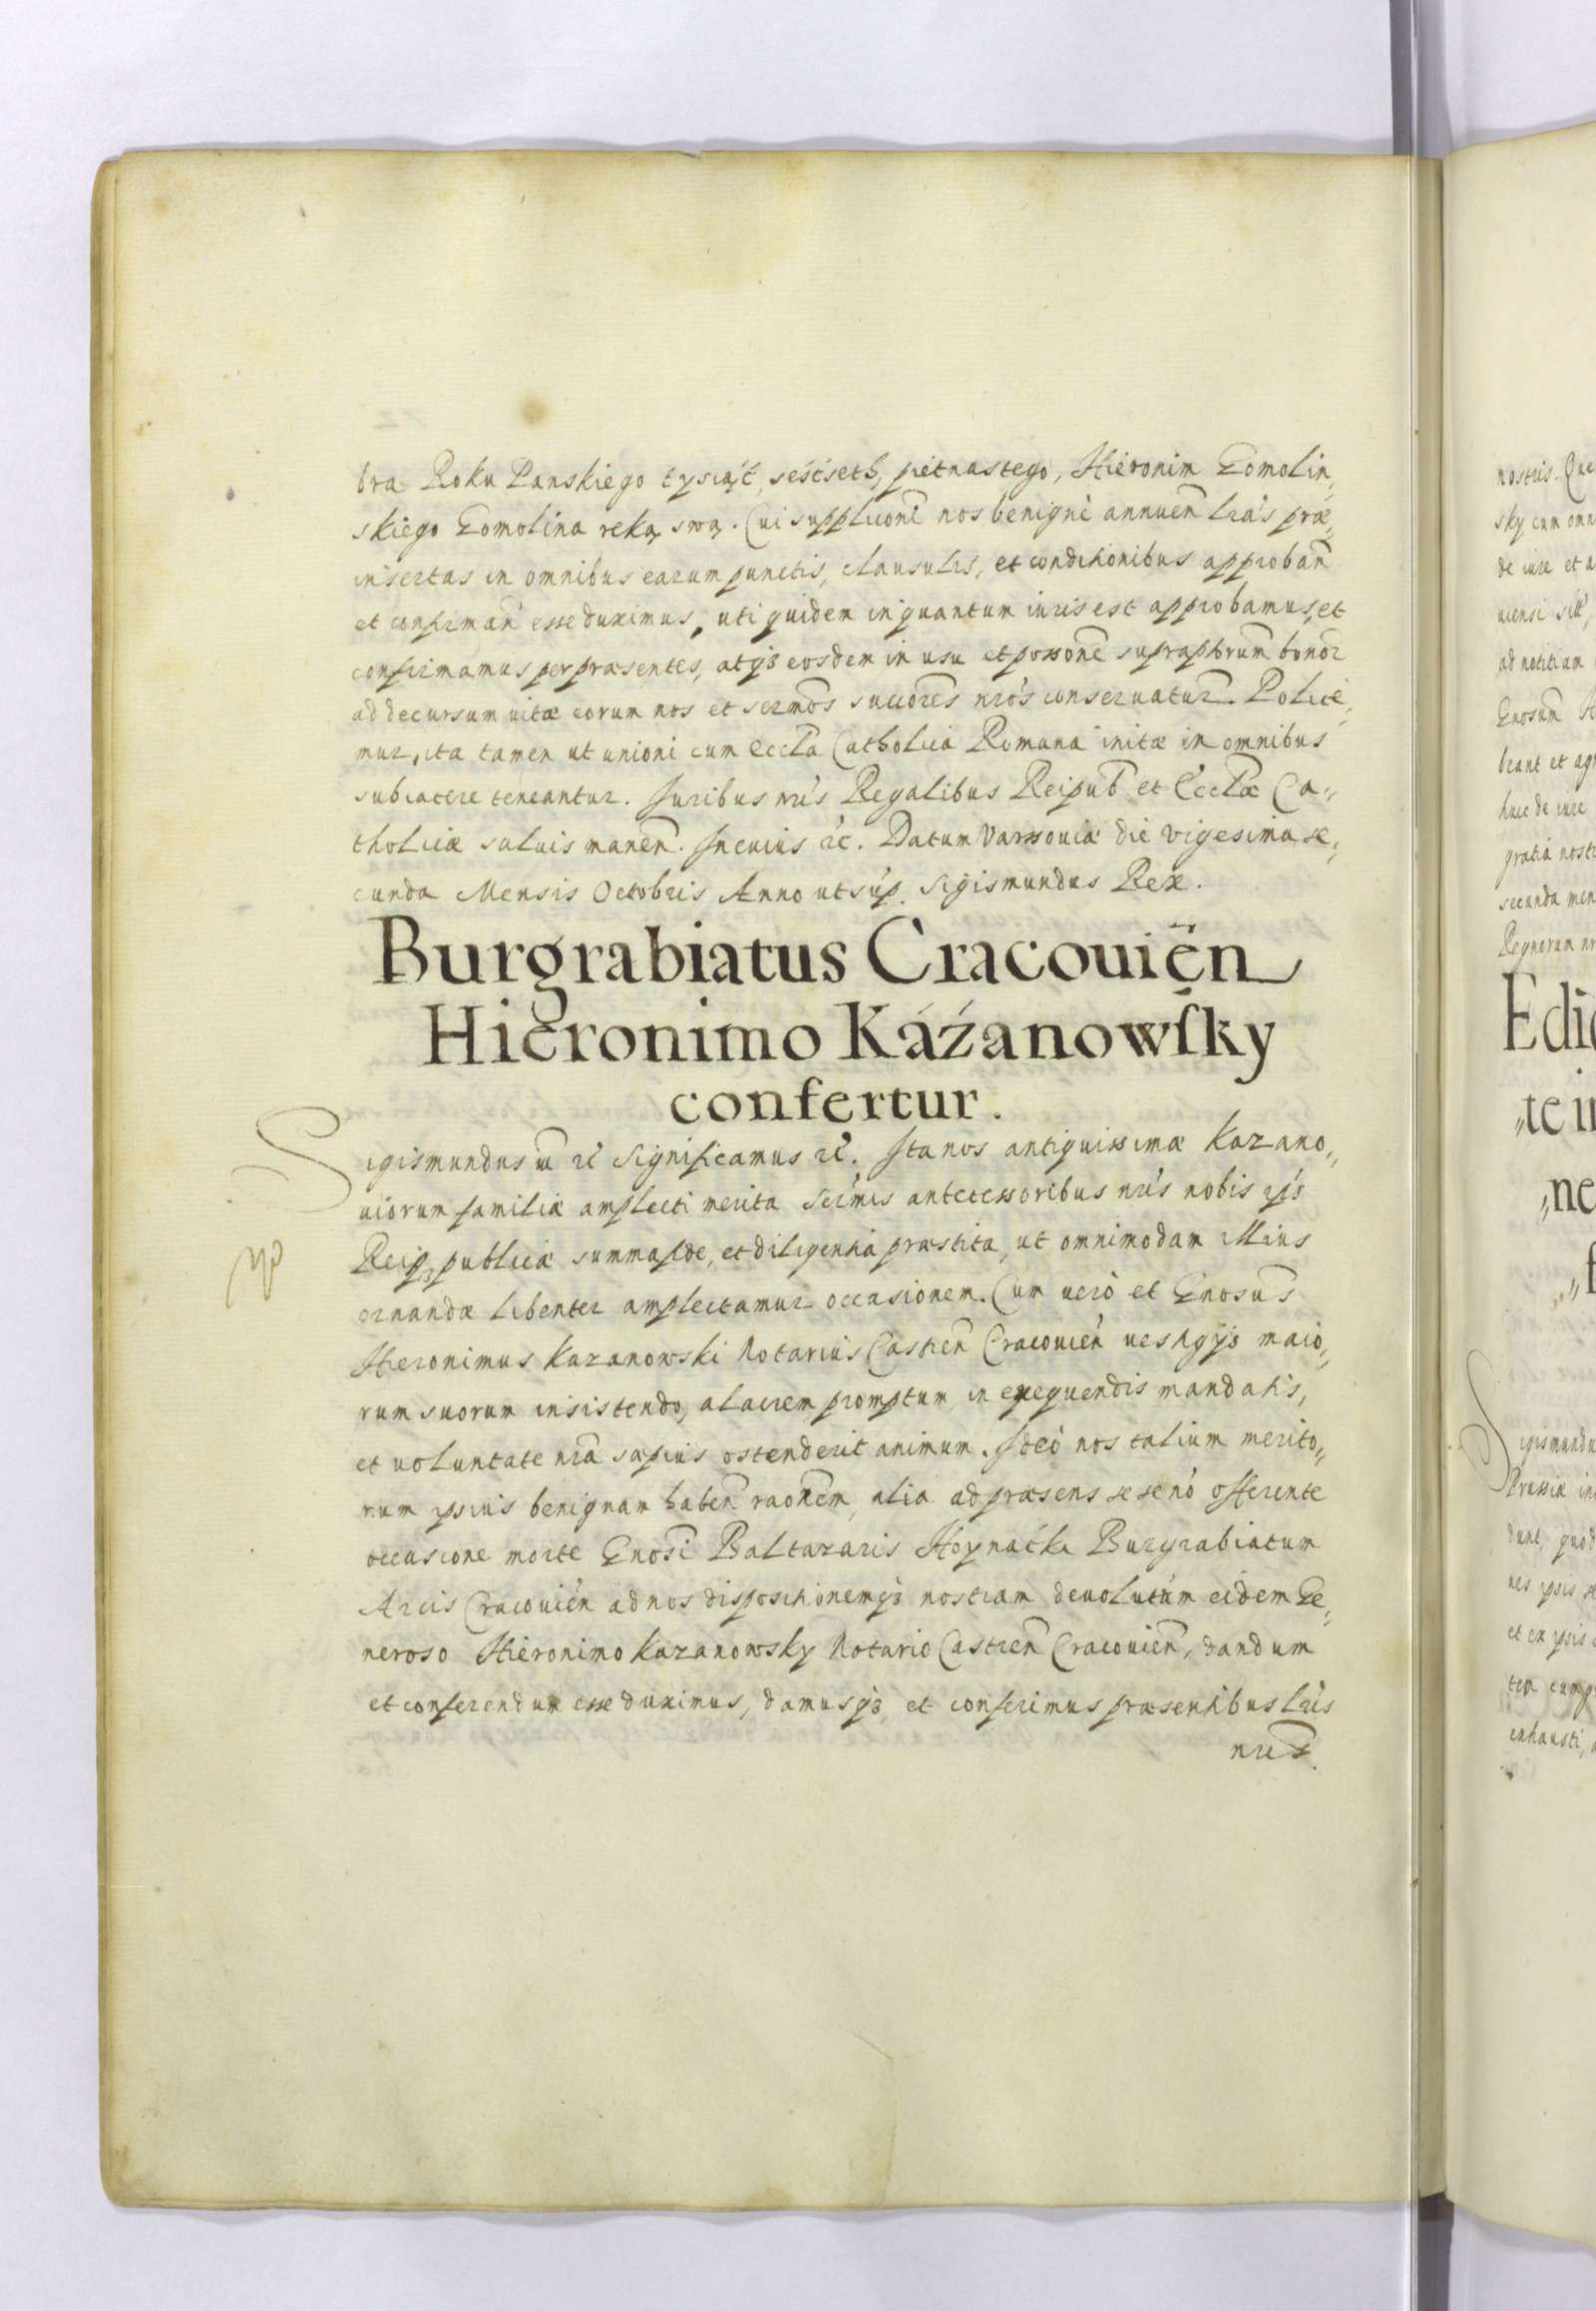 bra Roku Panskiego tysiąć, seśćseth, piętnastego, Hieronim Gomolin„
skiego Gomolina ręką swą. Cui suppliconi nos benignè annuen̄ lrás præ„
insertas in omnibus earum punctis, clausulis, et conditionibus approban̄
et confirman̄ esse duximus, uti quidem inquantum iuris est approbamus, et
confirmamus per præsentes, atq3 eosdem in usu et possone supraphtrum bonor
ad decursum uitæ eorum nos et sermos succores nros conseruatur. Polite„
mur, ita tamen ut unioni cum Eccla Catholica Romana initæ in omnibus
subiacere teneantur. Iuribus nris Regalibus Reipub et Ecclæ Ca„
tholicæ saluis manen̄. In cuius rc. Datum Varssouiæ die vigesima se„
cunda Mensis Octobris Anno ut sup. Sigismundus Rex.
Burgrabiatus Cracouien̄
Hieronimo Káźanowſky
confertur.
Sigismundus rc Significamus rc. Ita nos antiquissimæ Kazano„
uiorum familiæ amplecti merita Sermis antecessoribus nris nobis
Reiq3 publicæ summa fide, et diligentia præstita, ut omnimodam illius
ornandæ libenter amplectamur occasionem. Cum uerò et Gnosus
Hieronimus Kazanowski Notarius Castren̄ Cracouien̄ uestigijs maio„
rum suorum insistendo, alacrem promptum in exequendis mandatis,
et uoluntate nra sæpius ostenderit animum. Ideò nos talium merito„
rum ipsius benignam haben̄ raonem, alia ad præsens se se nò offerente
occasione morte Gnosi Baltazaris Burgrabiatum
Arcis Cracouien̄ ad nos dispositionemq3 nostram deuolutum eidem Ge„
neroso Hieronimo Kazanowsky Notario Castren̄ Cracouien̄, dandum
et conferendum esse duximus, damusq3 et conferimus præsentibus lris
nris
nostris.
sky cum
de iure et
ad notitiam
huic de iure
gratia
secunda
Regnorum
Edi
„te
„ne
Sigismundu
Prussiæ
dunt, quod
exhausti,